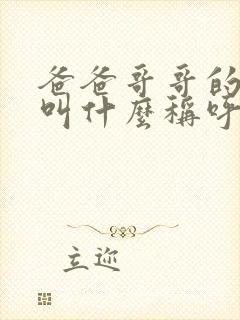 爸爸哥哥的
叫什麼稱呼
立迩